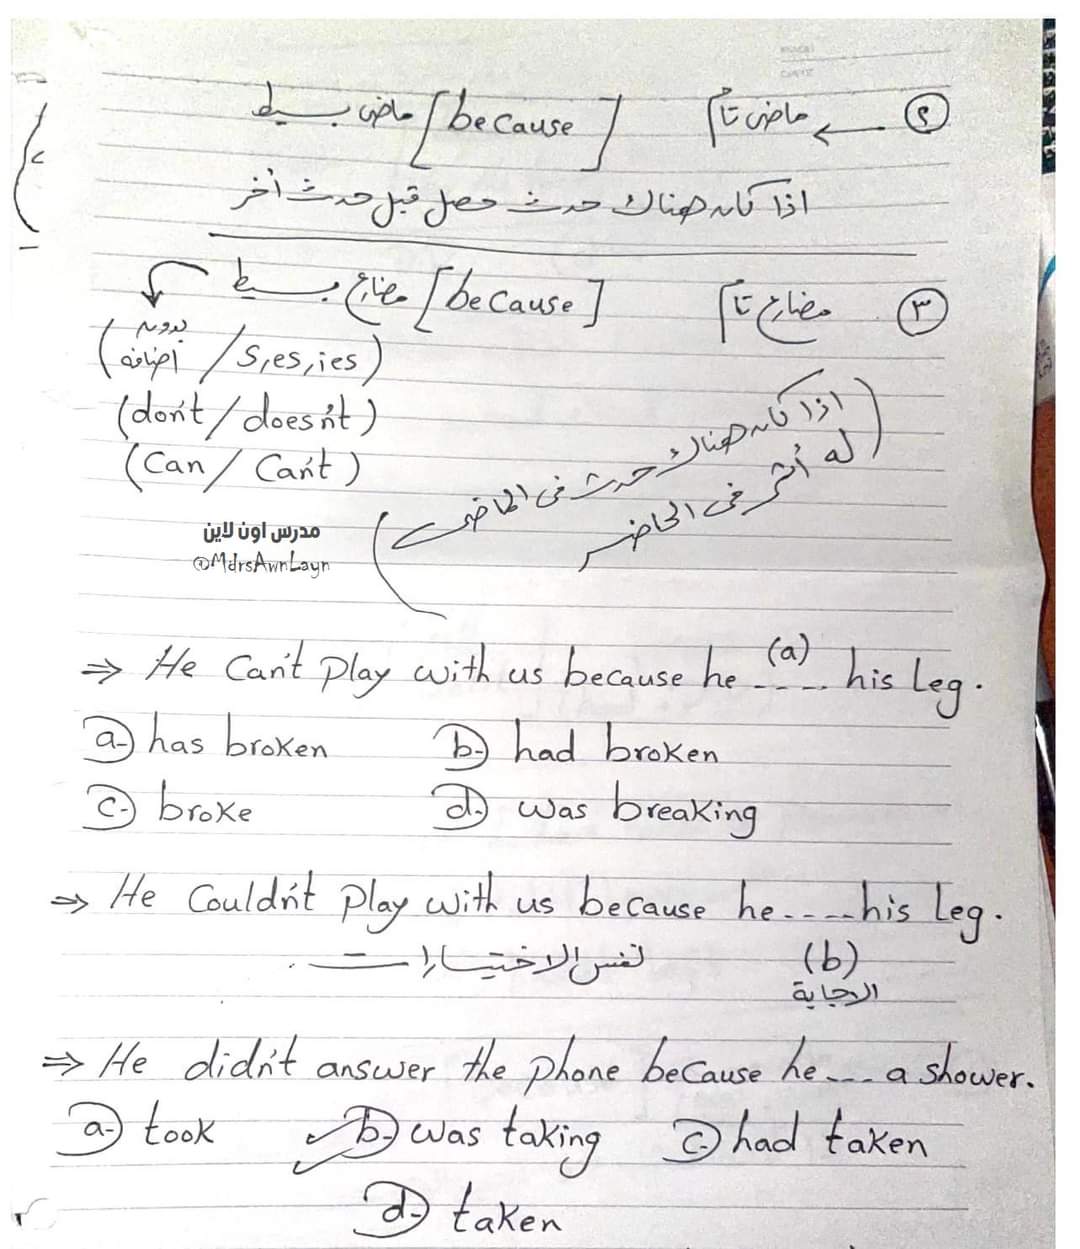 ٢ ← ماضى تام [because] ماضى بسيط
اذا كان هناك حدث حصل قبل حدث أخر
٣ مضارع تام [because] مضارع بسيط
(بدون اضافه / s, es, ies)
(don't / doesn't)
(Can / Can't)
(اذا كان هناك حدث فى الماضى
له أثر فى الحاضر)
مدرس اون لاين
@MdrsAwnLayn
⇒ He Can't Play with us because he (a) ---- his Leg.
a-) has broken b-) had broken
c-) broke d-) was breaking
⇒ He Couldn't Play with us because he ---- his Leg.
نفس الاختيارات . (b)
الاجابة
⇒ He didn't answer the phone because he --- a shower.
a-) took b-) was taking c-) had taken
d-) taken